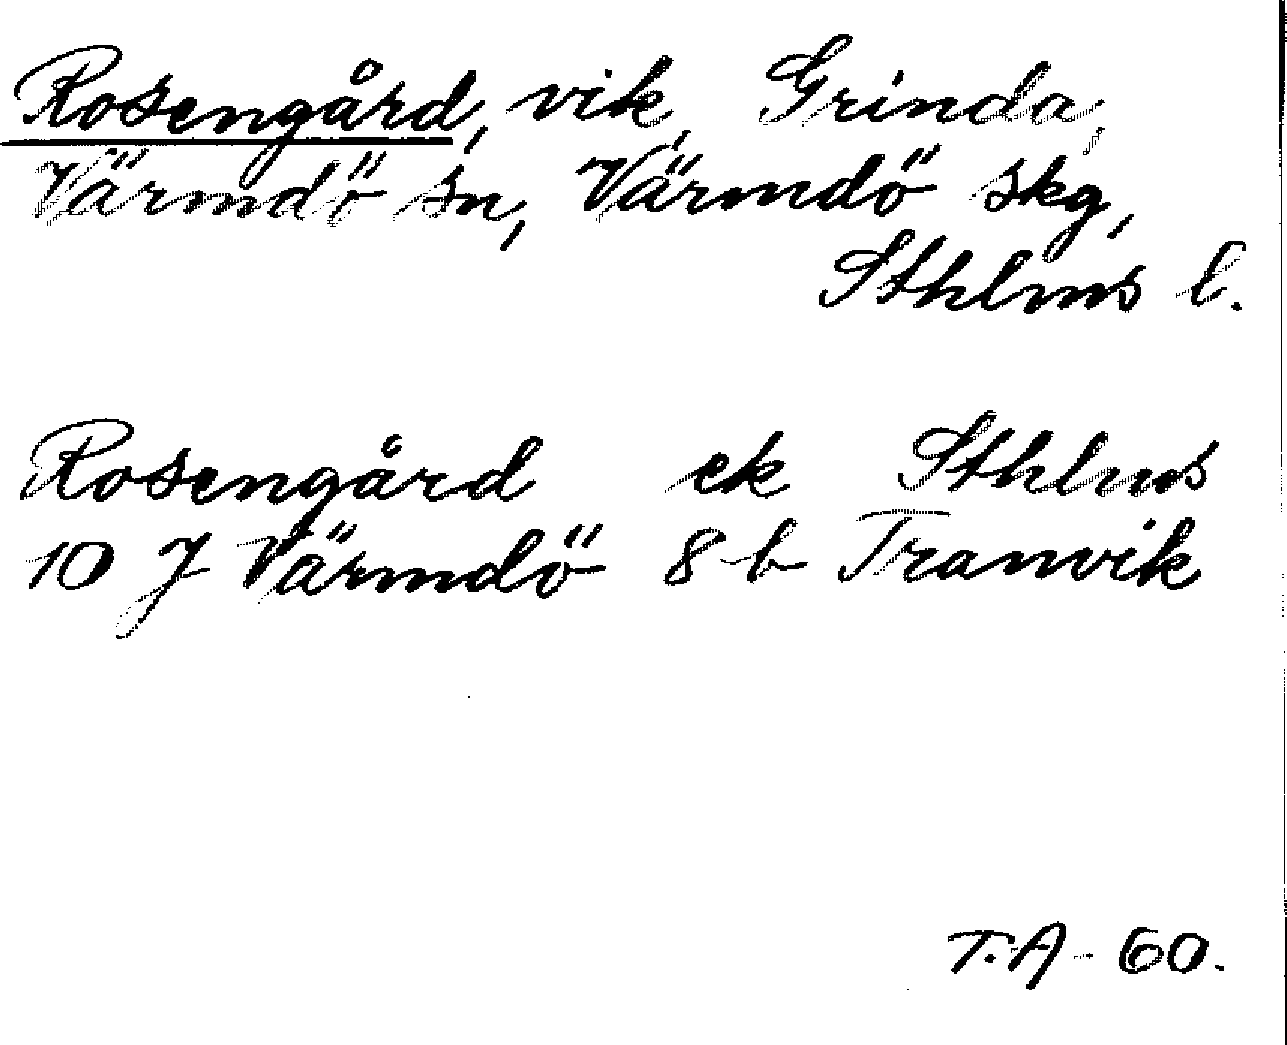 Rosengård, vik, Grinda,
Värmdö sn, Värmdö skg,
Sthlms l.
Rosengård ek Sthlms
10 J Värmdö 8 b Tranvik
T.A - 60.